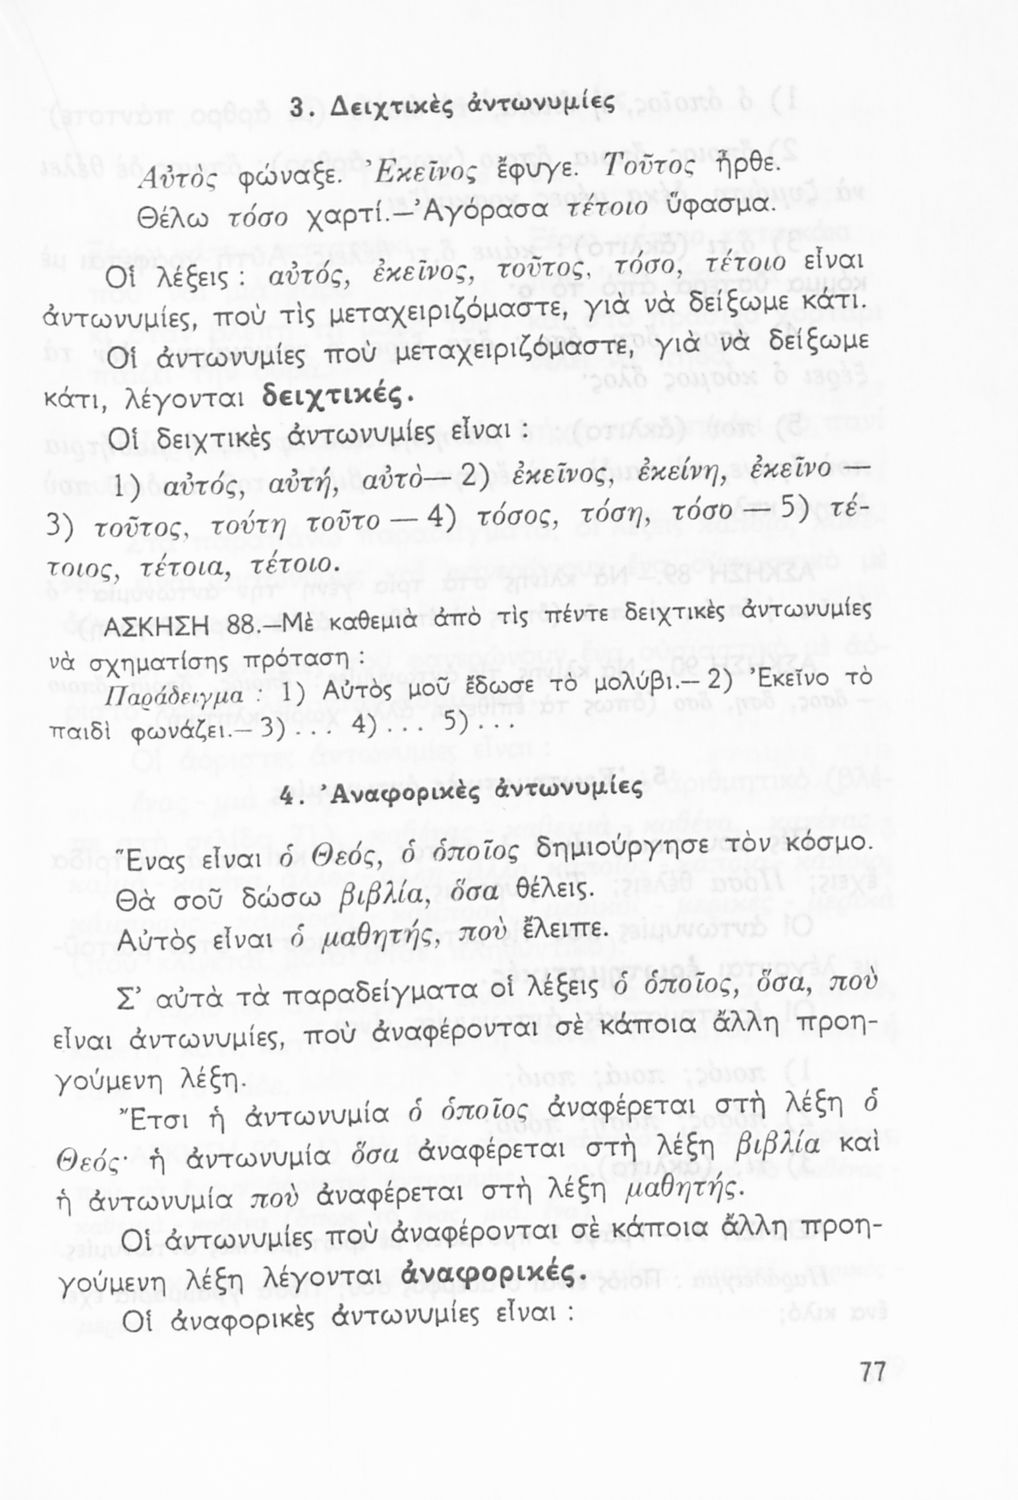 3. Δειχτικὲς ἀντωνυμίες
Αὐτὸς φώναξε. Ἐκεῖνος ἔφυγε. Τοῦτος ἦρθε.
Θέλω τόσο χαρτί.—Ἀγόρασα τέτοιο ὕφασμα.
Οἱ λέξεις : αὐτός, ἐκεῖνος, τοῦτος, τόσο, τέτοιο εἶναι
ἀντωνυμίες, ποὺ τὶς μεταχειριζόμαστε, γιὰ νὰ δείξωμε κάτι.
Οἱ ἀντωνυμίες ποὺ μεταχειριζόμαστε, γιὰ νὰ δείξωμε
κάτι, λέγονται δειχτικές.
Οἱ δειχτικὲς ἀντωνυμίες εἶναι :
1) αὐτός, αὐτή, αὐτὸ— 2) ἐκεῖνος, ἐκείνη, ἐκεῖνο —
3) τοῦτος, τούτη τοῦτο — 4) τόσος, τόση, τόσο — 5) τέ-
τοιος, τέτοια, τέτοιο.
ΑΣΚΗΣΗ 88.—Μὲ καθεμιὰ ἀπὸ τὶς πέντε δειχτικὲς ἀντωνυμίες
νὰ σχηματίσης πρόταση :
Παράδειγμα : 1) Αὐτὸς μοῦ ἔδωσε τὸ μολύβι.— 2) Ἐκεῖνο τὸ
παιδὶ φωνάζει.— 3) . . . 4) . . . 5) . . .
4. Ἀναφορικὲς ἀντωνυμίες
Ἕνας εἶναι ὁ Θεός, ὁ ὁποῖος δημιούργησε τὸν κόσμο.
Θὰ σοῦ δώσω βιβλία, ὅσα θέλεις.
Αὐτὸς εἶναι ὁ μαθητής, ποὺ ἔλειπε.
Σ' αὐτὰ τὰ παραδείγματα οἱ λέξεις ὁ ὁποῖος, ὅσα, ποὺ
εἶναι ἀντωνυμίες, ποὺ ἀναφέρονται σὲ κάποια ἄλλη προη-
γούμενη λέξη.
Ἔτσι ἡ ἀντωνυμία ὁ ὁποῖος ἀναφέρεται στὴ λέξη ὁ
Θεός· ἡ ἀντωνυμία ὅσα ἀναφέρεται στὴ λέξη βιβλία καὶ
ἡ ἀντωνυμία ποὺ ἀναφέρεται στὴ λέξη μαθητής.
Οἱ ἀντωνυμίες ποὺ ἀναφέρονται σὲ κάποια ἄλλη προη-
γούμενη λέξη λέγονται ἀναφορικές.
Οἱ ἀναφορικὲς ἀντωνυμίες εἶναι :
77